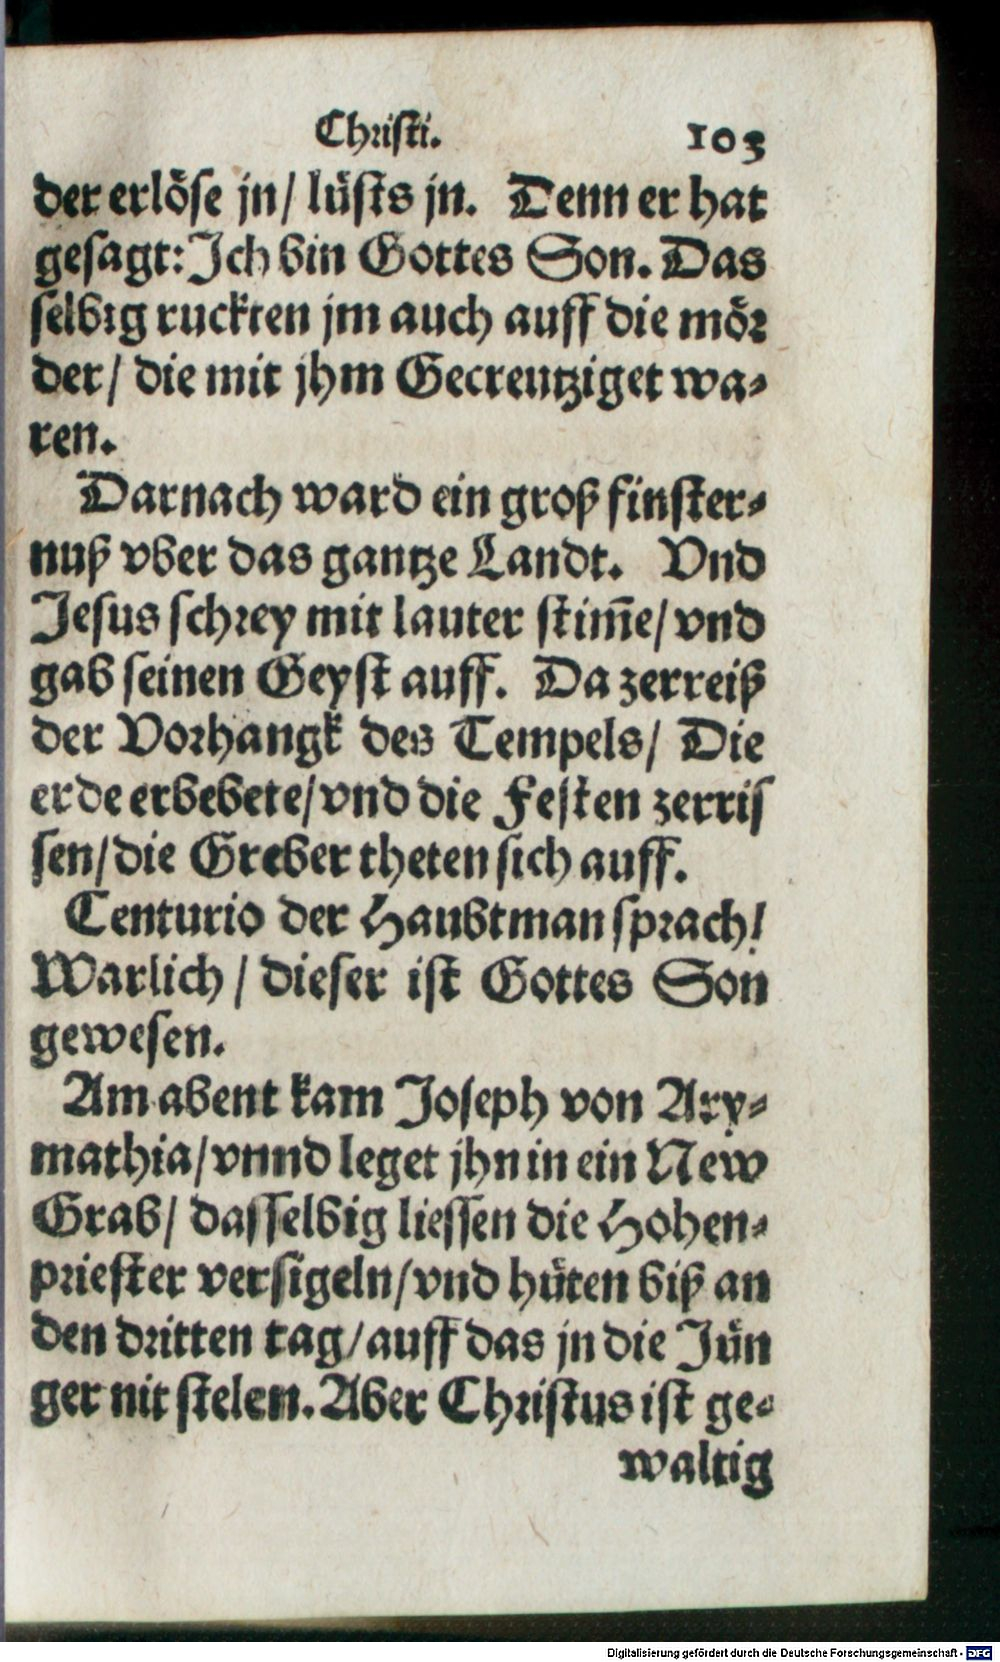 Christi. 103
der erlöse jn/ lüsts jn. Denn er hat
gesagt: Ich bin Gottes Son. Das
selbig ruckten jm auch auff die mör
der/ die mit jhm Gecreutziget wa-
ren.
Darnach ward ein groß finster-
nuß vber das gantze Landt. Vnd
Jesus schrey mit lauter stim̃e/ vnd
gab seinen Geyst auff. Da zerreiß
der Vorhangk des Tempels/ Die
erde erbebete/ vnd die Festen zerris
sen/ die Greber theten sich auff.
Centurio der Haubtman sprach/
Warlich/ dieser ist Gottes Son
gewesen.
Am abent kam Joseph von Ary-
mathia/ vnnd leget jhn in ein New
Grab/ dasselbig liessen die Hohen-
priester versigeln/ vnd hüten biß an
den dritten tag/ auff das jn die Jün
ger nit stelen. Aber Christus ist ge-
waltig
Digitalisierung gefördert durch die Deutsche Forschungsgemeinschaft - DFG